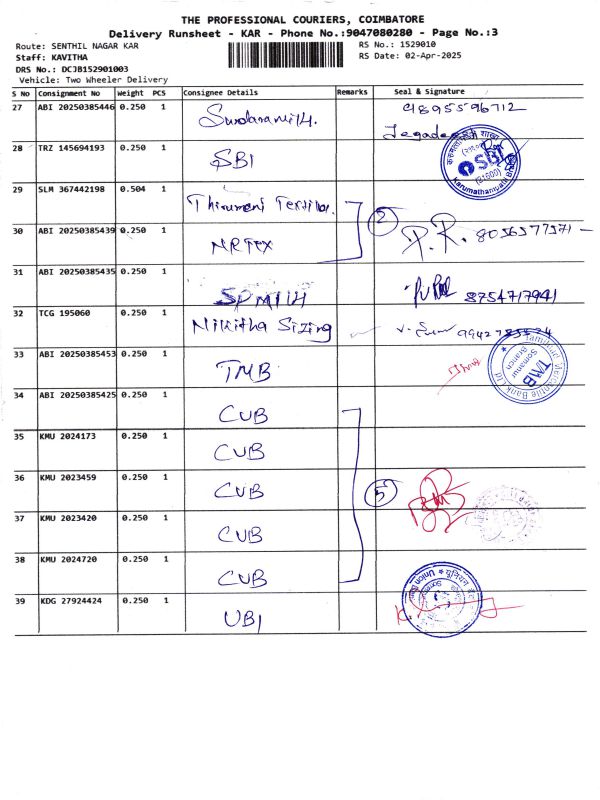 THE PROFESSIONAL COURIERS, COIMBATORE
Delivery Runsheet - KAR - Phone No.:9047080280 - Page No.:3
Route: SENTHIL NAGAR KAR
RS No.: 1529010
Staff: KAVITHA
RS Date: 02-Apr-2025
DRS No.: DCJB152901003
Vehicle: Two Wheeler Delivery
S No Consignment No Weight PCS Consignee Details Remarks Seal & Signature
27 ABI 20250385446 0.250 1 9895596712
28 TRZ 145694193 0.250 1 SBI
SBI
(81600)
Karumathampatti
29 SLM 367442198 0.504 1 Thirumani
2
30 ABI 20250385439 0.250 1 NRTex P.R. 8056577571
31 ABI 20250385435 0.250 1 SPMILH 8754717941
32 TCG 195060 0.250 1 Nikitha Sizing
33 ABI 20250385453 0.250 1 TMB
Tamilnad Mercantile Bank Ltd
TMB
Somanur
Branch
34 ABI 20250385425 0.250 1 CUB
35 KMU 2024173 0.250 1 CUB
36 KMU 2023459 0.250 1 CUB
5
37 KMU 2023420 0.250 1 CUB
38 KMU 2024720 0.250 1 CUB
39 KDG 27924424 0.250 1 UBI
यूनियन
Union